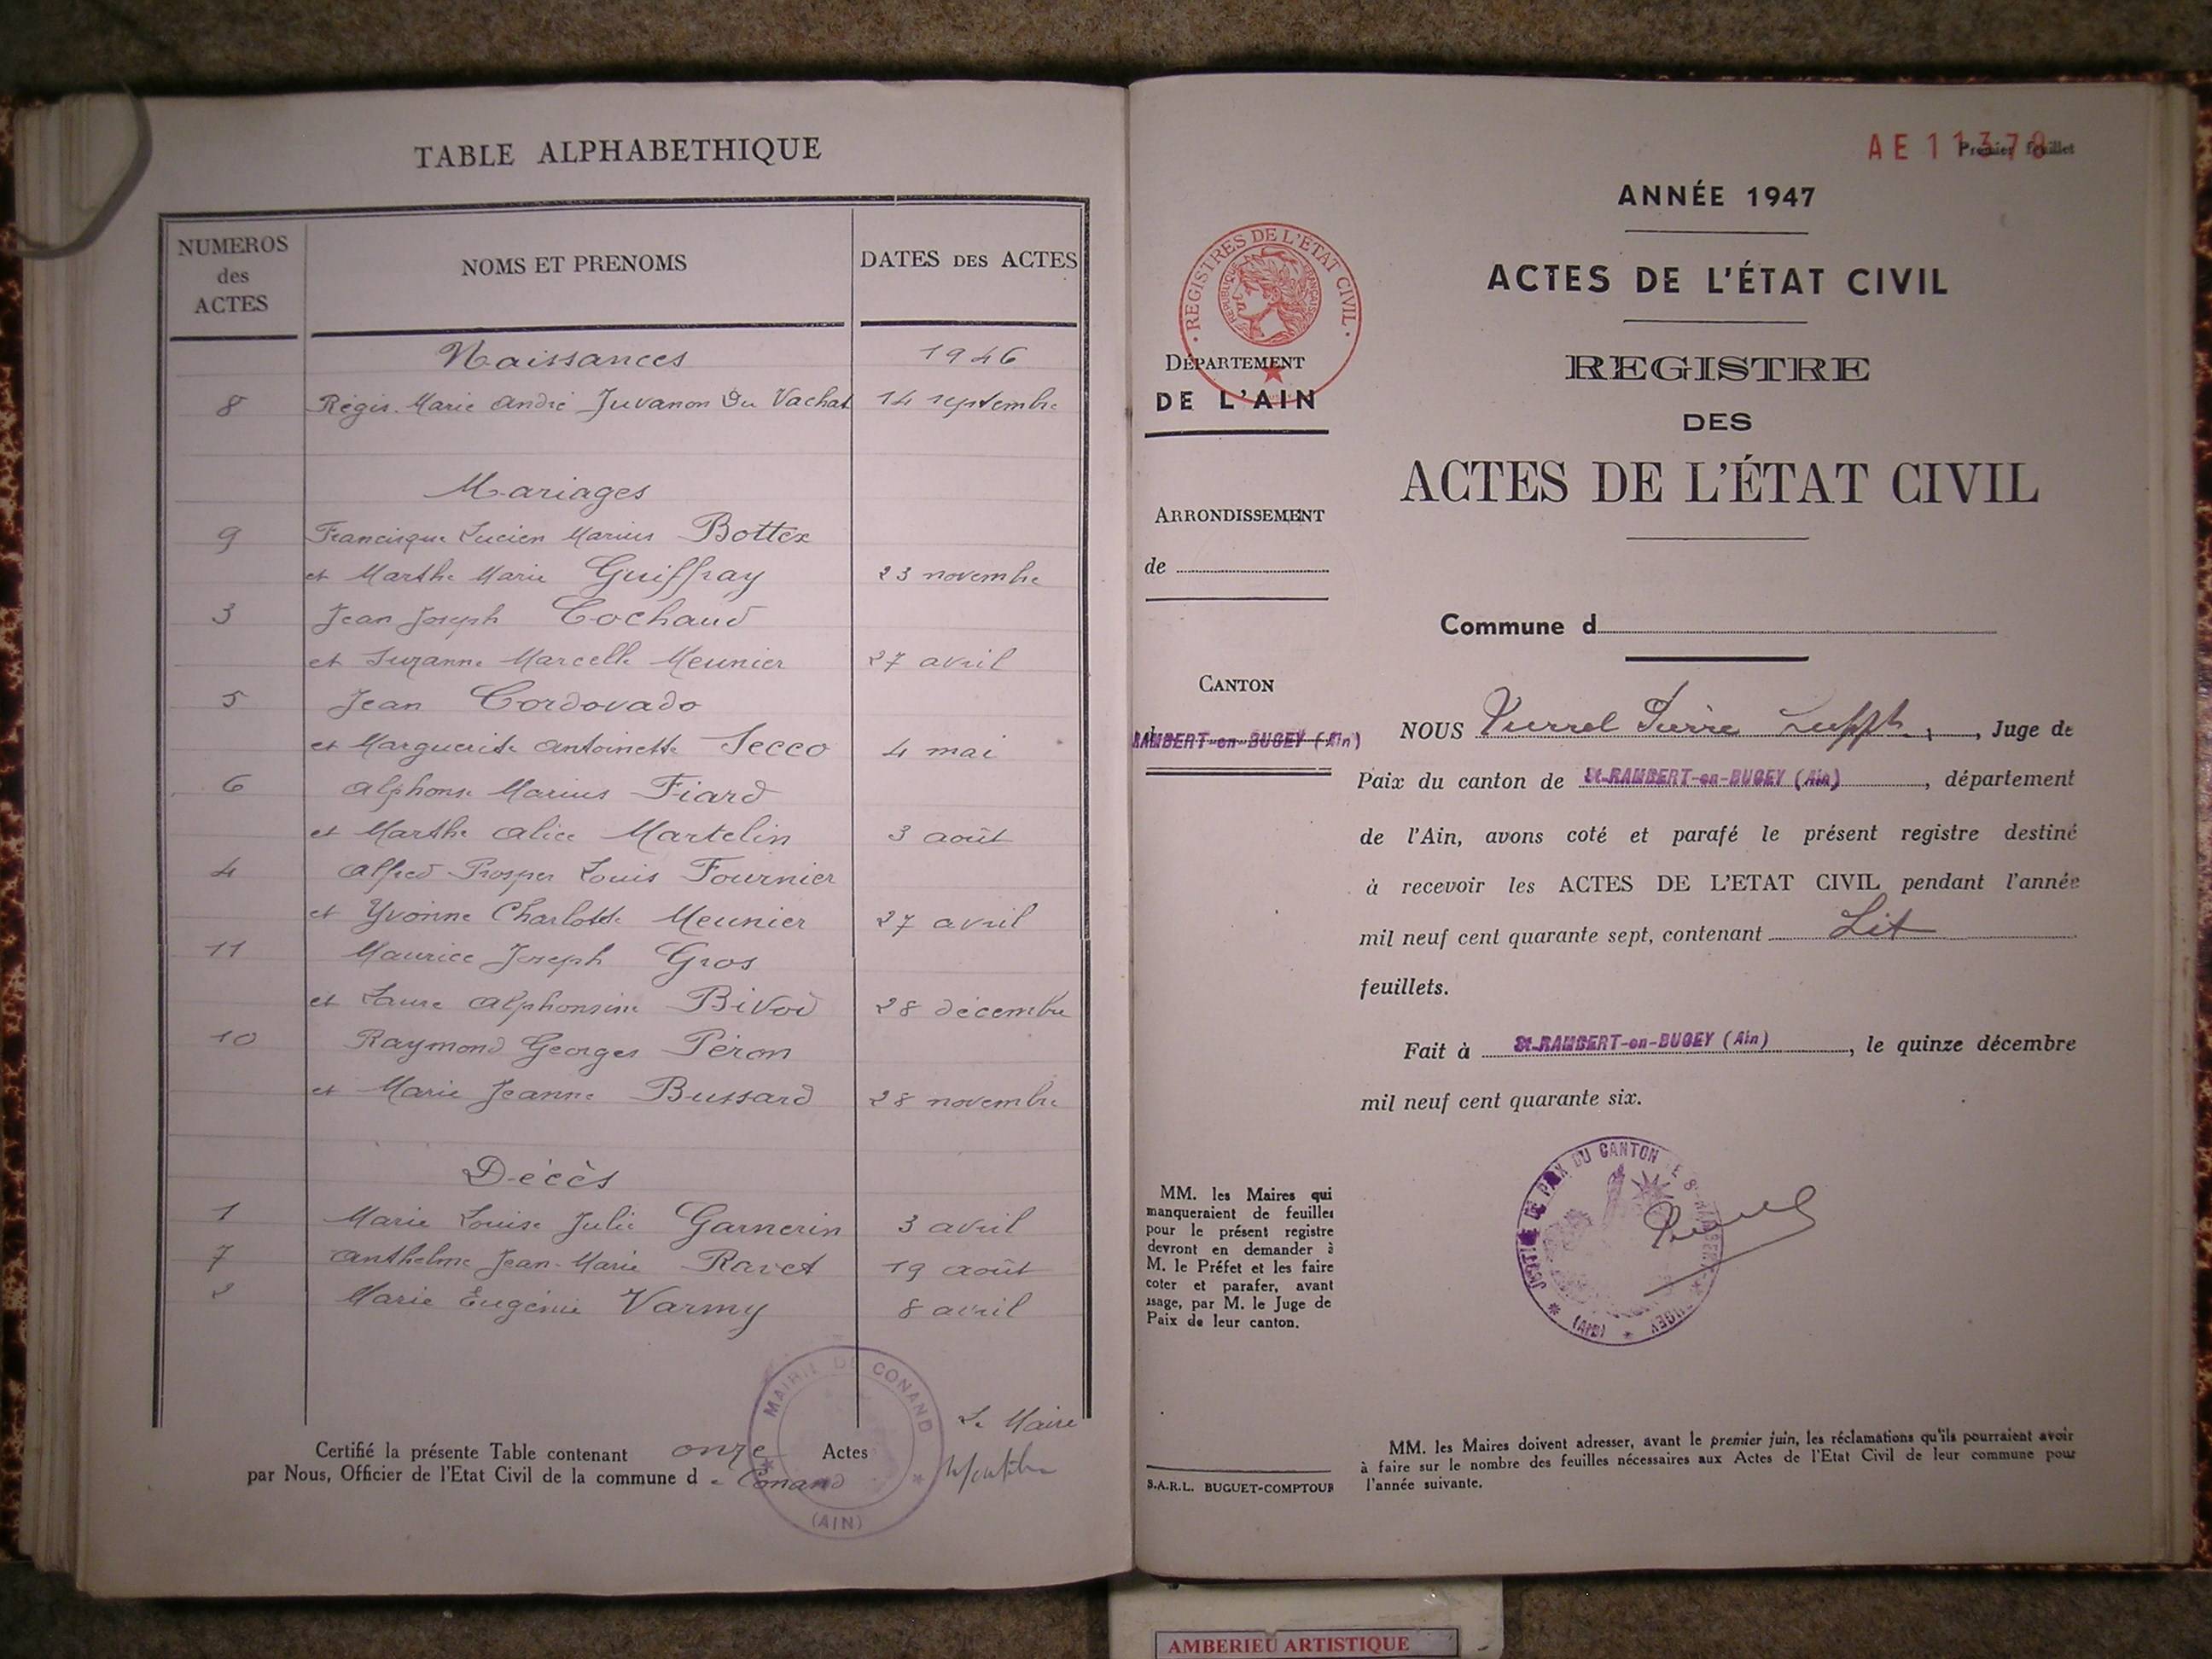 TABLE ALPHABETHIQUE
NUMEROS des ACTES
NOMS ET PRENOMS
DATES DES ACTES
Naissances 1946
8 Régis Marie André Juvanon Du Vachat 14 septembre
Mariages
9 Francisque Lucien Marius Bottex
et Marthe Marie Guiffray 23 novembre
3 Jean Joseph Cochaud
et Suzanne Marcelle Meunier 27 avril
5 Jean Cordovado
et Marguerite Antoinette Secco 4 mai
6 Alphonse Marius Fiard
et Marthe Alice Martelin 3 août
4 Alfred Prosper Louis Fournier
et Yvonne Charlotte Meunier 27 avril
11 Maurice Joseph Gros
et Laure Alphonsine Bivod 28 décembre
10 Raymond Georges Péron
et Marie Jeanne Bussard 28 novembre
Décès
1 Marie Louise Julie Garnerin 3 avril
7 Anthelme Jean-Marie Ravet 19 août
2 Marie Eugénie Varmy 8 avril
MAIRIE DE CONAND
(AIN)
Le Maire
Certifié la présente Table contenant onze Actes
par Nous, Officier de l'Etat Civil de la commune d e Conand
AE 11378
Premier feuillet
ANNÉE 1947
ACTES DE L'ÉTAT CIVIL
REGISTRE
DES
ACTES DE L'ÉTAT CIVIL
Commune d
REGISTRES DE L'ETAT CIVIL
REPUBLIQUE FRANÇAISE
DÉPARTEMENT
DE L'AIN
ARRONDISSEMENT
de
CANTON
RAMBERT-en-BUGEY (Ain)
NOUS Pierre , Juge de
Paix du canton de St-RAMBERT-en-BUGEY (Ain), département
de l'Ain, avons coté et parafé le présent registre destiné
à recevoir les ACTES DE L'ETAT CIVIL pendant l'année
mil neuf cent quarante sept, contenant
feuillets.
Fait à St-RAMBERT-en-BUGEY (Ain), le quinze décembre
mil neuf cent quarante six.
JUSTICE DE PAIX DU CANTON DE St-RAMBERT
BUGEY
(AIN)
MM. les Maires qui
manqueraient de feuilles
pour le présent registre
devront en demander à
M. le Préfet et les faire
coter et parafer, avant
usage, par M. le Juge de
Paix de leur canton.
S.A.R.L. BUGUET-COMPTOUR
MM. les Maires doivent adresser, avant le premier juin, les réclamations qu'ils pourraient avoir
à faire sur le nombre des feuilles nécessaires aux Actes de l'Etat Civil de leur commune pour
l'année suivante.
AMBERIEU ARTISTIQUE